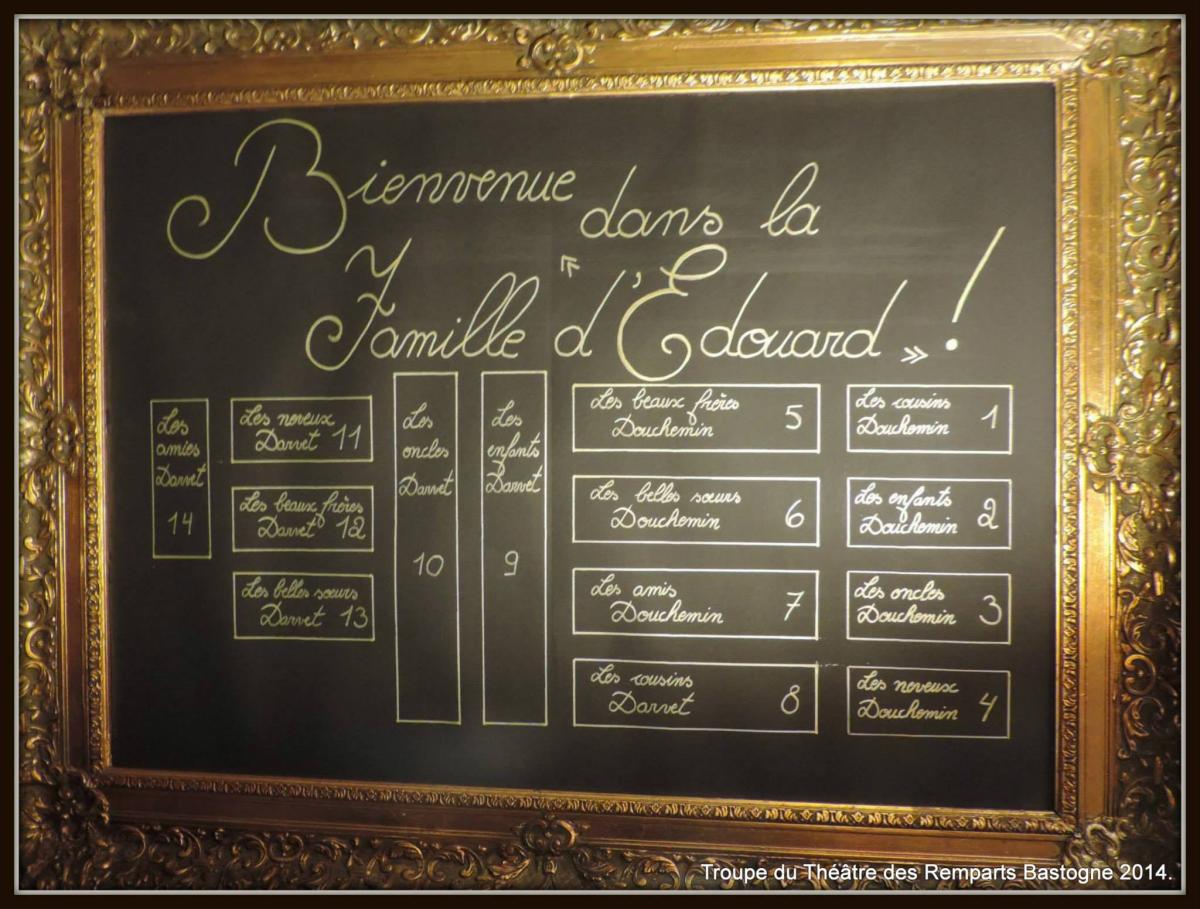 Bienvenue dans la
« Famille d'Edouard » !
Les
amies
Darvet
14
Les neveux
Darvet 11
Les beaux frères
Darvet 12
Les belles sœurs
Darvet 13
Les
oncles
Darvet
10
Les
enfants
Darvet
9
Les beaux frères
Douchemin 5
Les belles sœurs
Douchemin 6
Les amis
Douchemin 7
Les cousins
Darvet 8
Les cousins
Douchemin 1
Les enfants
Douchemin 2
Les oncles
Douchemin 3
Les neveux
Douchemin 4
Troupe du Théâtre des Remparts Bastogne 2014.